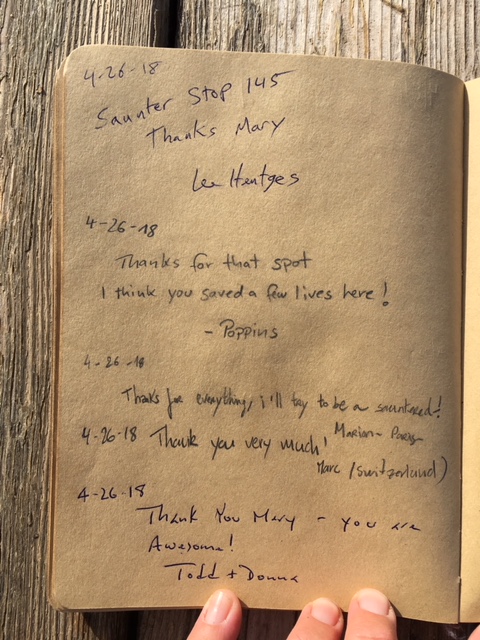 4-26-18
Saunter Stop 145
Thanks Mary
Lee Hentges
4-26-18
Thanks for that spot
I think you saved a few lives here!
- Poppins
4-26-18
Thanks for everything, i'll try to be a saunterer!
Marion - Paris
4-26-18 Thank you very much!
Marc (Switzerland)
4-26-18
Thank You Mary - you are
Awesome!
Todd + Donna